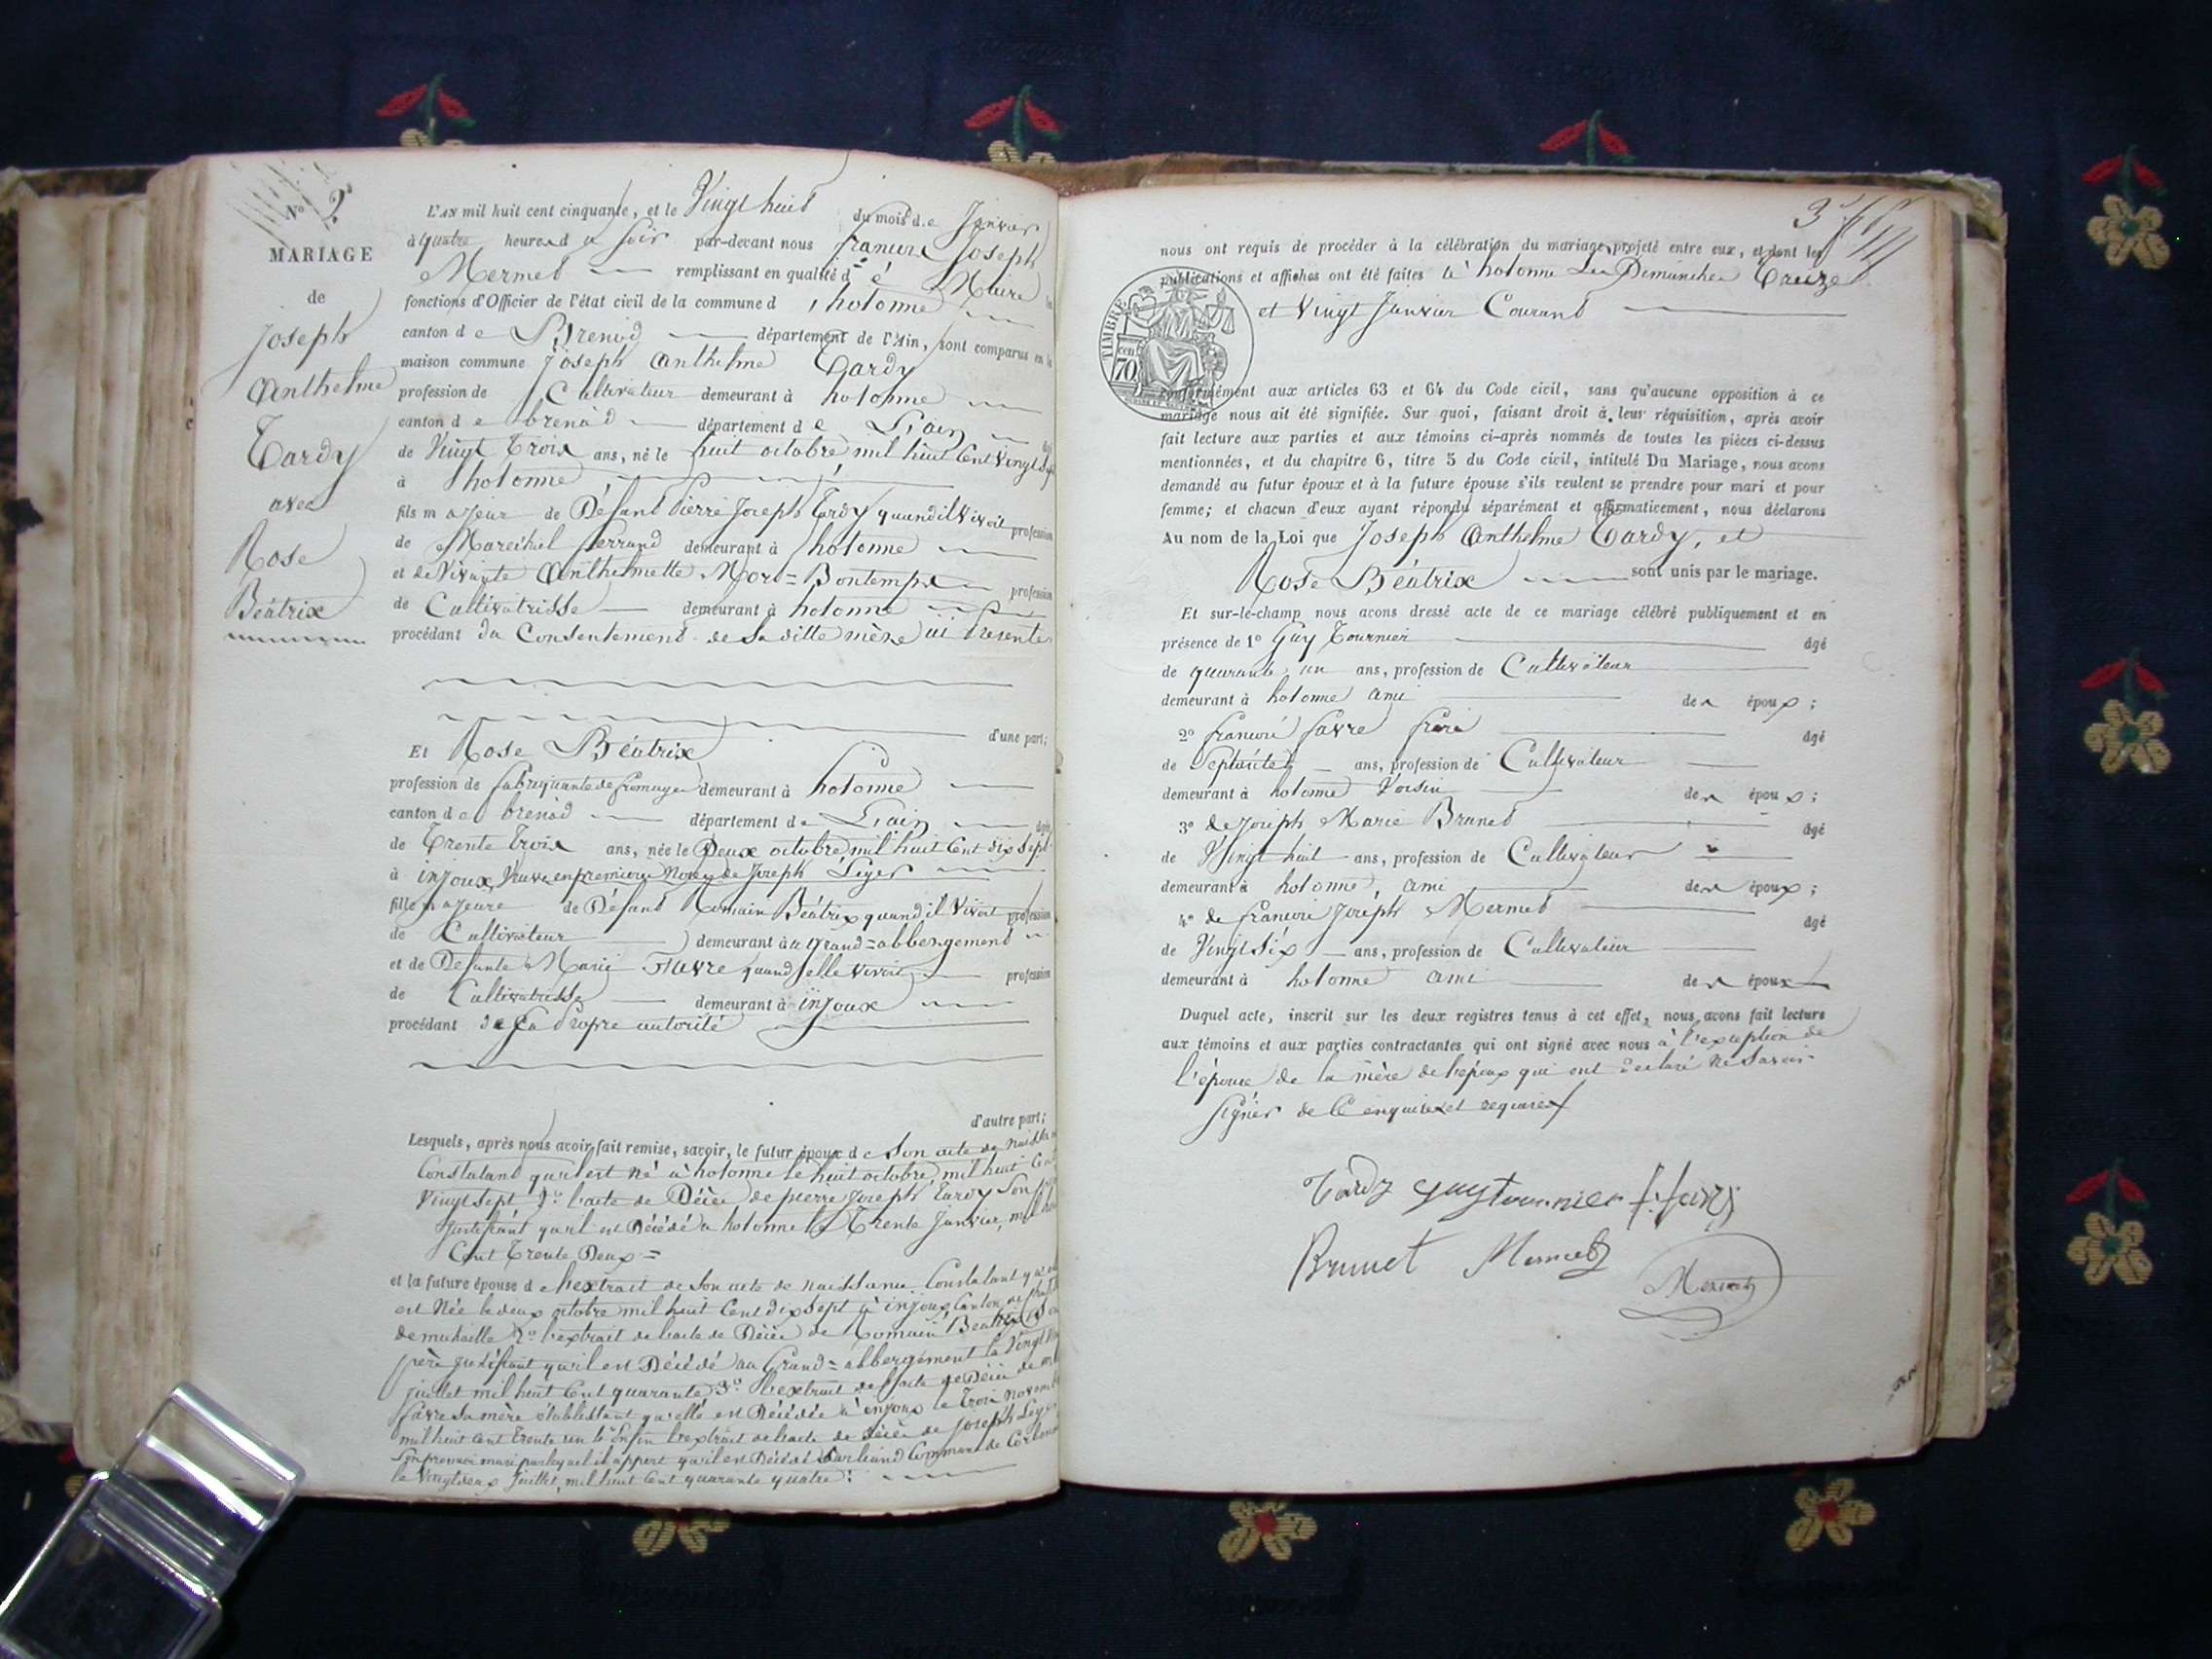 No 2
MARIAGE
de
Joseph
Anthelme
Tardy
avec
Rose
Béatrix
L'AN mil huit cent cinquante, et le Vingt huit du mois de Janvier
à quatre heures du soir par-devant nous francois Joseph
Mermet remplissant en qualité de Maire
fonctions d'Officier de l'état civil de la commune d' hotonne
canton de Brenod département de l'Ain, sont comparus en la
maison commune Joseph Anthelme Tardy
profession de Cultivateur demeurant à hotonne
canton de brenod département de L'ain
de Vingt Trois ans, né le huit octobre mil huit Cent Vingt Sept
à hotonne
fils majeur de Défunt Pierre Joseph Tardy quand il Vivoit profession
de Marechal ferrand demeurant à hotonne
et de Vivante Anthelmette Mord=Bontemps profession
de Cultivatrisse demeurant à hotonne
procédant du Consentement de Sa ditte mère ici Presente
d'une part;
Et Rose Béatrix
profession de fabriquante de fromage demeurant à hotonne
canton de brenod département de L'ain âgée
de Trente Trois ans, née le Deux octobre mil huit Cent dix Sept
à injoux, Veuve en premiere Noces de Joseph Léger
fille majeure de Défunt Romain Béatrix quand il Vivoit profession
de Cultivateur demeurant à u grand=abbergement
et de Defunte Marie Favre quand elle vivoit profession
de Cultivatrisse demeurant à injoux
procédant de Sa Propre autorité
d'autre part;
Lesquels, après nous avoir fait remise, savoir, le futur époux de Son acte de naissance
Constatant qu'il est né à hotonne le huit octobre mil huit Cent
Vingt Sept 2o l'acte de Décès de pierre Joseph Tardy Son père
Justifiant qu'il est Décédé a hotonne le Trente Janvier, mil huit
Cent Trente Deux=
et la future épouse de l'extrait de Son acte de naissance Constatant qu'elle
est Née le deux octobre mil huit Cent dix Sept à injoux Canton de
de michaille 2o l'extrait de l'acte de Décès de Romain Béatrix Son
père Justifiant qu'il est Décédé au Grand=abbergement le Vingt
juillet mil huit Cent quarante 3o l'extrait de l'acte de Décès de
favre Sa mère établissant qu'elle est Décédée à injoux le Trois Novembre
mil huit Cent Trente un Enfin l'extrait de l'acte de décès de Joseph Léger
Son premier mari par lequel il appert qu'il est Décédé Commune de
le Vingt deux Juillet, mil huit Cent quarante quatre:
3
nous ont requis de procéder à la célébration du mariage projeté entre eux, et dont les
publications et affiches ont été faites à hotonne Les Dimanches Treize
et Vingt Janvier Courant
TIMBRE
70
conformément aux articles 63 et 64 du Code civil, sans qu'aucune opposition à ce
mariage nous ait été signifiée. Sur quoi, faisant droit à leur réquisition, après avoir
fait lecture aux parties et aux témoins ci-après nommés de toutes les pièces ci-dessus
mentionnées, et du chapitre 6, titre 5 du Code civil, intitulé Du Mariage, nous avons
demandé au futur époux et à la future épouse s'ils veulent se prendre pour mari et pour
femme; et chacun d'eux ayant répondu séparément et affirmativement, nous déclarons
Au nom de la Loi que Joseph Anthelme Tardy, et
Rose Béatrix sont unis par le mariage.
Et sur-le-champ nous avons dressé acte de ce mariage célébré publiquement et en
présence de 1o Guy Tournier âgé
de quarante un ans, profession de Cultivateur
demeurant à hotonne ami des époux;
2o francois favre frere âgé
de Septante ans, profession de Cultivateur
demeurant à hotonne Voisin des époux;
3o de Joseph Marie Brunet âgé
de Vingt huit ans, profession de Cultivateur
demeurant à hotonne, ami des époux;
4o de francois Joseph Mermet âgé
de Vingt Six ans, profession de Cultivateur
demeurant à hotonne ami des époux
Duquel acte, inscrit sur les deux registres tenus à cet effet, nous avons fait lecture
aux témoins et aux parties contractantes qui ont signé avec nous à l'exception de
l'épouse de la mère de l'epoux qui ont declaré ne Savoir
Signer de Ce enquises et requises
Tardy guy tournier
Brunet Mermet
Mermet